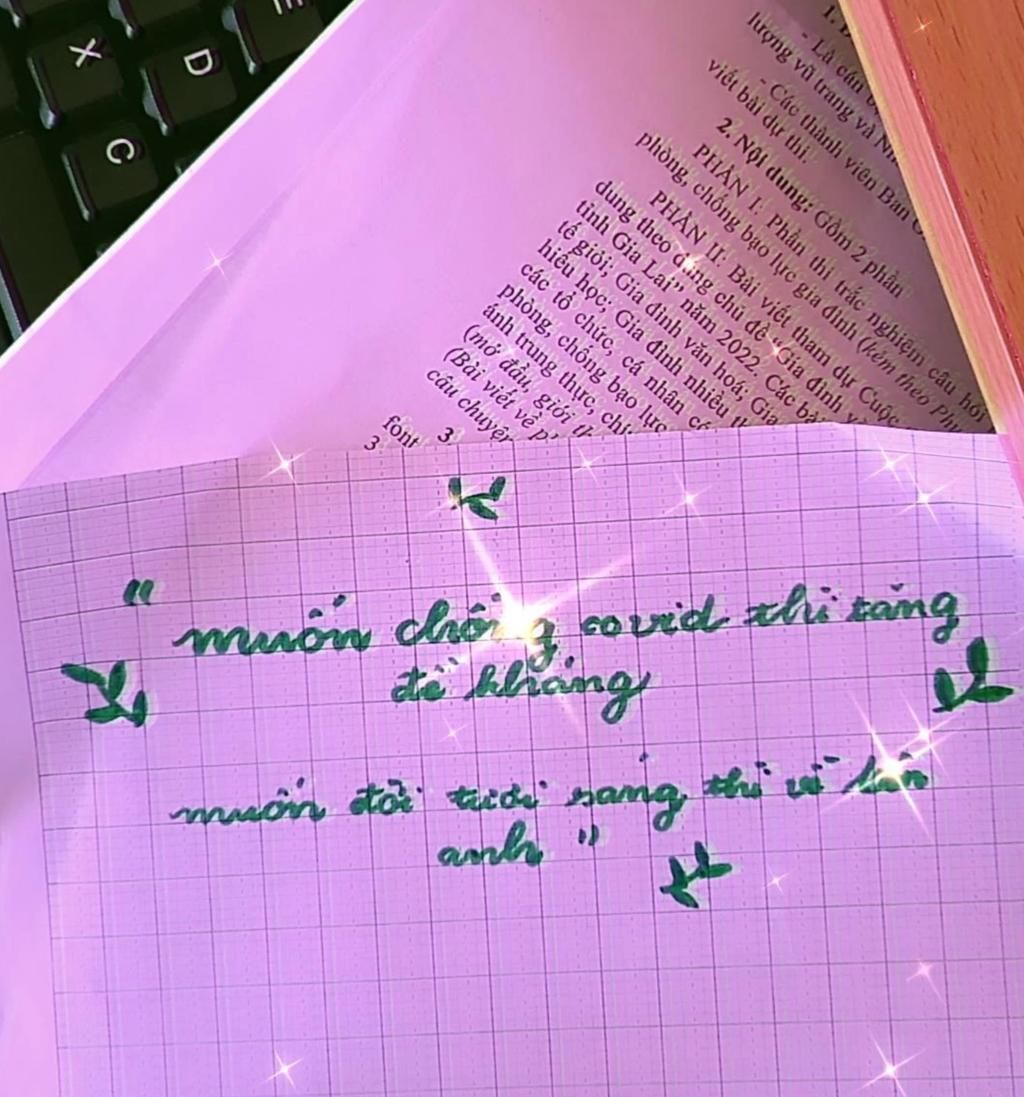 E
X
D
C
1.
- Là cán
lượng vũ trang và
- Các thành viên Ban
viết bài dự thi.
2. Nội dung: Gồm 2 phần
PHẦN I: Phần thi trắc nghiệm câu hỏi
phòng, chống bạo lực gia đình (kèm theo
PHẦN II: Bài viết tham dự Cuộc
dung theo đúng chủ đề “Gia đình
tỉnh Gia Lai” năm 2022. Các bài
tế giới; Gia đình văn hoá; Gia
hiếu học; Gia đình nhiều
các tổ chức, cá nhân có
phòng, chống bạo lực
ánh trung thực, chi
(mở đầu, giới
(Bài viết về
câu chuyện
font
3
3
“ muốn chống covid thì tăng
đề kháng
muốn đời tươi sáng thì về bên
anh ”